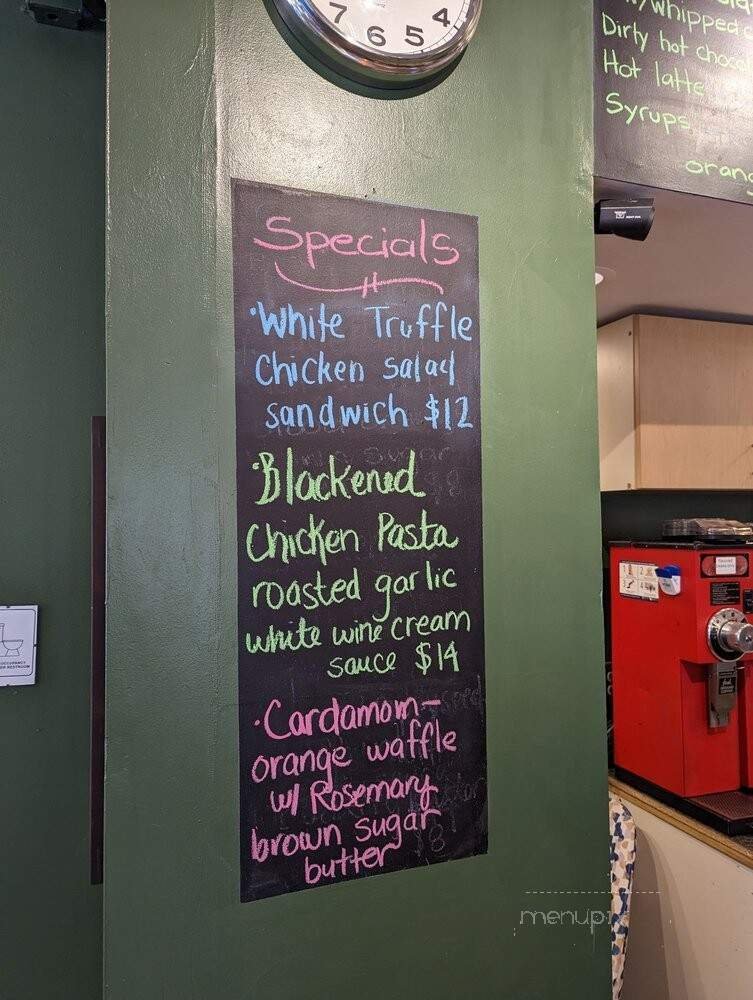 7 6 5 4
w/whipped
Dirty hot
Hot latte
Syrups
Specials
·White Truffle
Chicken salad
sandwich $12
·Blackened
Chicken Pasta
roasted garlic
white wine cream
sauce $14
·Cardamom-
orange waffle
w/ Rosemary
brown sugar
butter
menupix